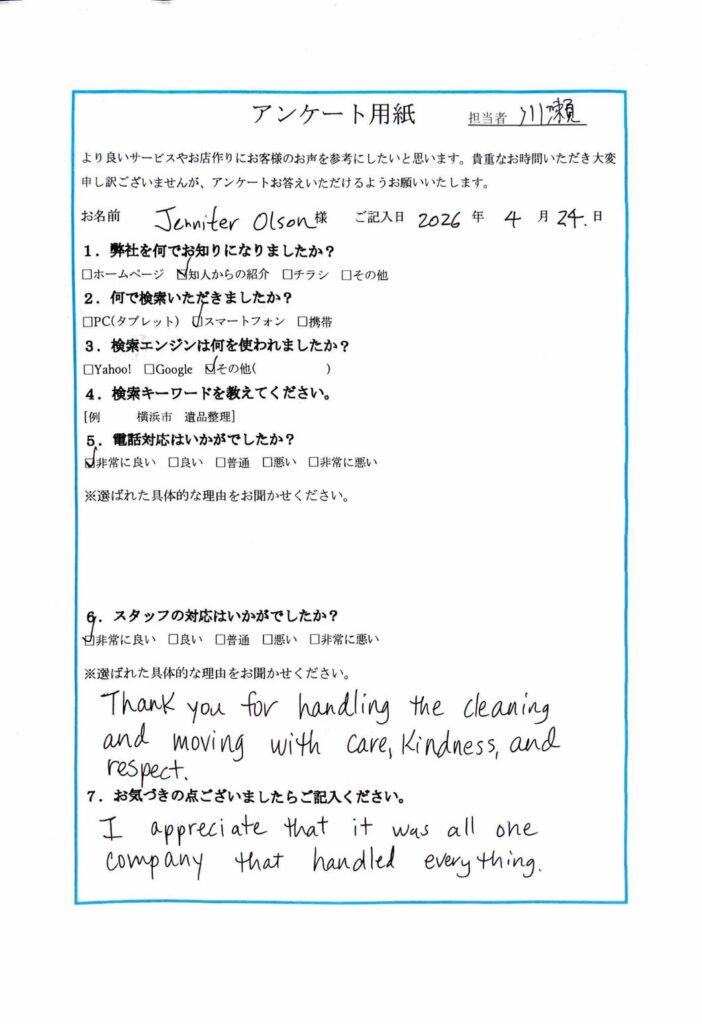 アンケート用紙 担当者 川瀬
より良いサービスやお店作りにお客様のお声を参考にしたいと思います。貴重なお時間いただき大変
申し訳ございませんが、アンケートお答えいただけるようお願いいたします。
お名前 Jennifer Olson 様 ご記入日 2026 年 4 月 24. 日
1．弊社を何でお知りになりましたか？
□ホームページ ☑知人からの紹介 □チラシ □その他
2．何で検索いただきましたか？
□PC(タブレット) ☑スマートフォン □携帯
3．検索エンジンは何を使われましたか？
□Yahoo! □Google ☑その他( )
4．検索キーワードを教えてください。
[例 横浜市 遺品整理]
5．電話対応はいかがでしたか？
☑非常に良い □良い □普通 □悪い □非常に悪い
※選ばれた具体的な理由をお聞かせください。
6．スタッフの対応はいかがでしたか？
☑非常に良い □良い □普通 □悪い □非常に悪い
※選ばれた具体的な理由をお聞かせください。
Thank you for handling the cleaning
and moving with care, kindness, and
respect.
7．お気づきの点ございましたらご記入ください。
I appreciate that it was all one
company that handled everything.